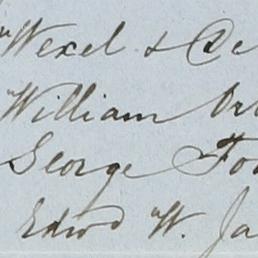 Wexel & De
William Or
George Fo
Edwd W. Ja